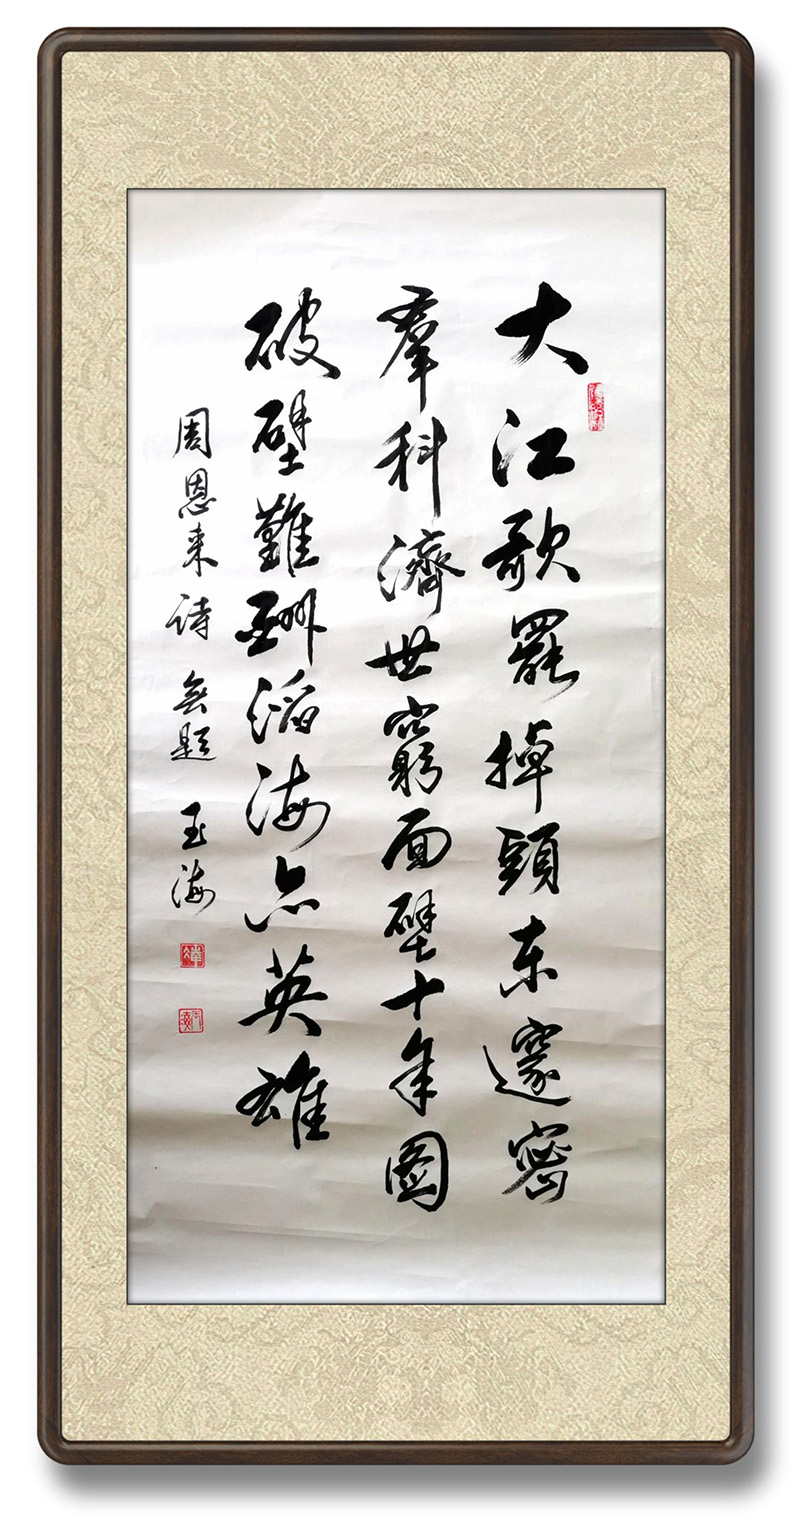 大江歌罷掉頭东邃密
羣科濟世窮面壁十年圖
破壁難酬滔海亦英雄
周恩来诗 無題 玉海